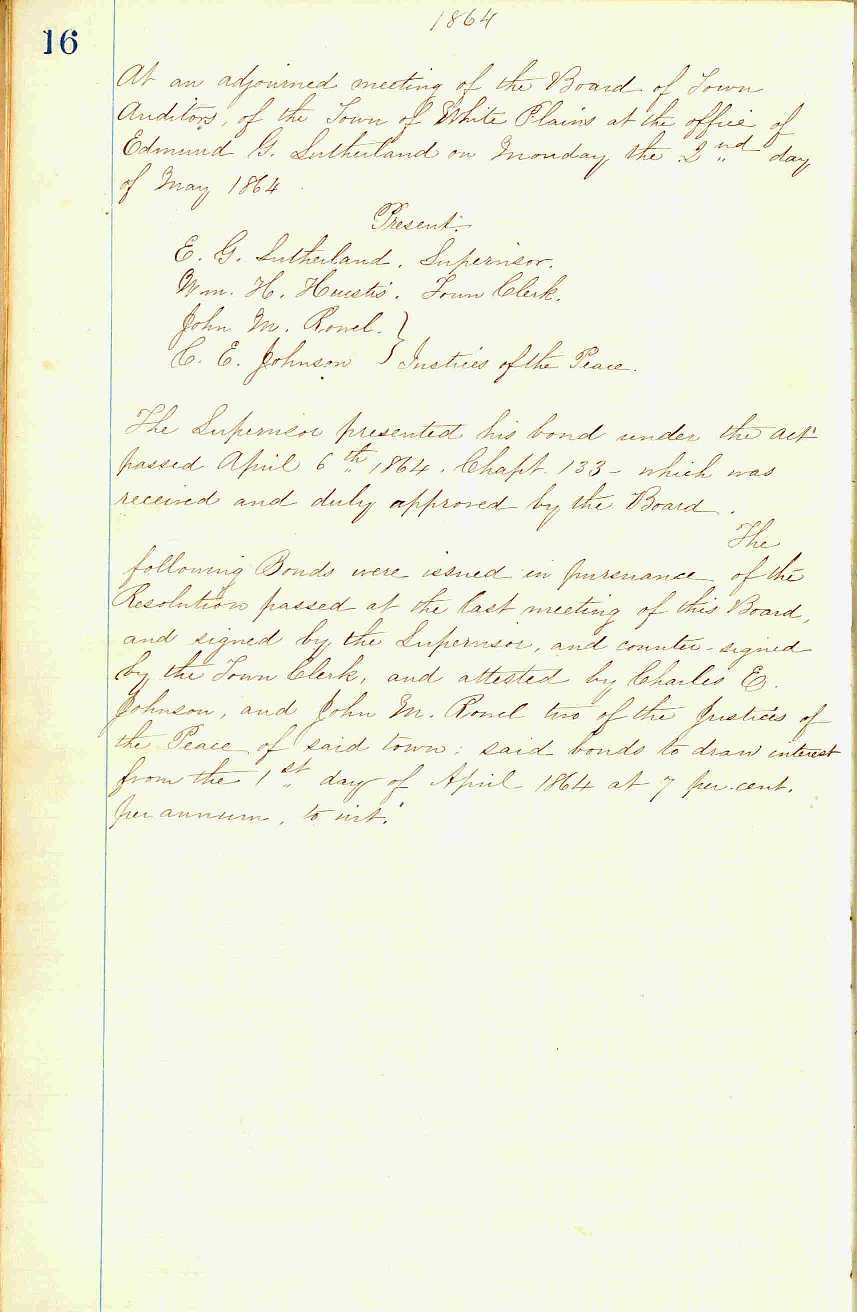 1864
16
At an adjourned meeting of the Board of Town
Auditors, of the Town of White Plains at the office of
Edmund G. Sutherland on Monday the 2nd day
of May 1864
Present.
E. G. Sutherland. Supervisor.
Wm. H. Huestis. Town Clerk.
John M. Rowel. }
C. E. Johnson } Justices of the Peace.
The Supervisor presented his bond under the act
passed April 6th 1864. Chapt. 133 - which was
received and duly approved by the Board.
The
following Bonds were issued in pursuance of the
Resolution passed at the last meeting of this Board,
and signed by the Supervisor, and counter-signed
by the Town Clerk, and attested by Charles E.
Johnson, and John M. Rowel two of the Justices of
the Peace of said town: said bonds to draw interest
from the 1st day of April 1864 at 7 per.cent.
per annum, to wit: